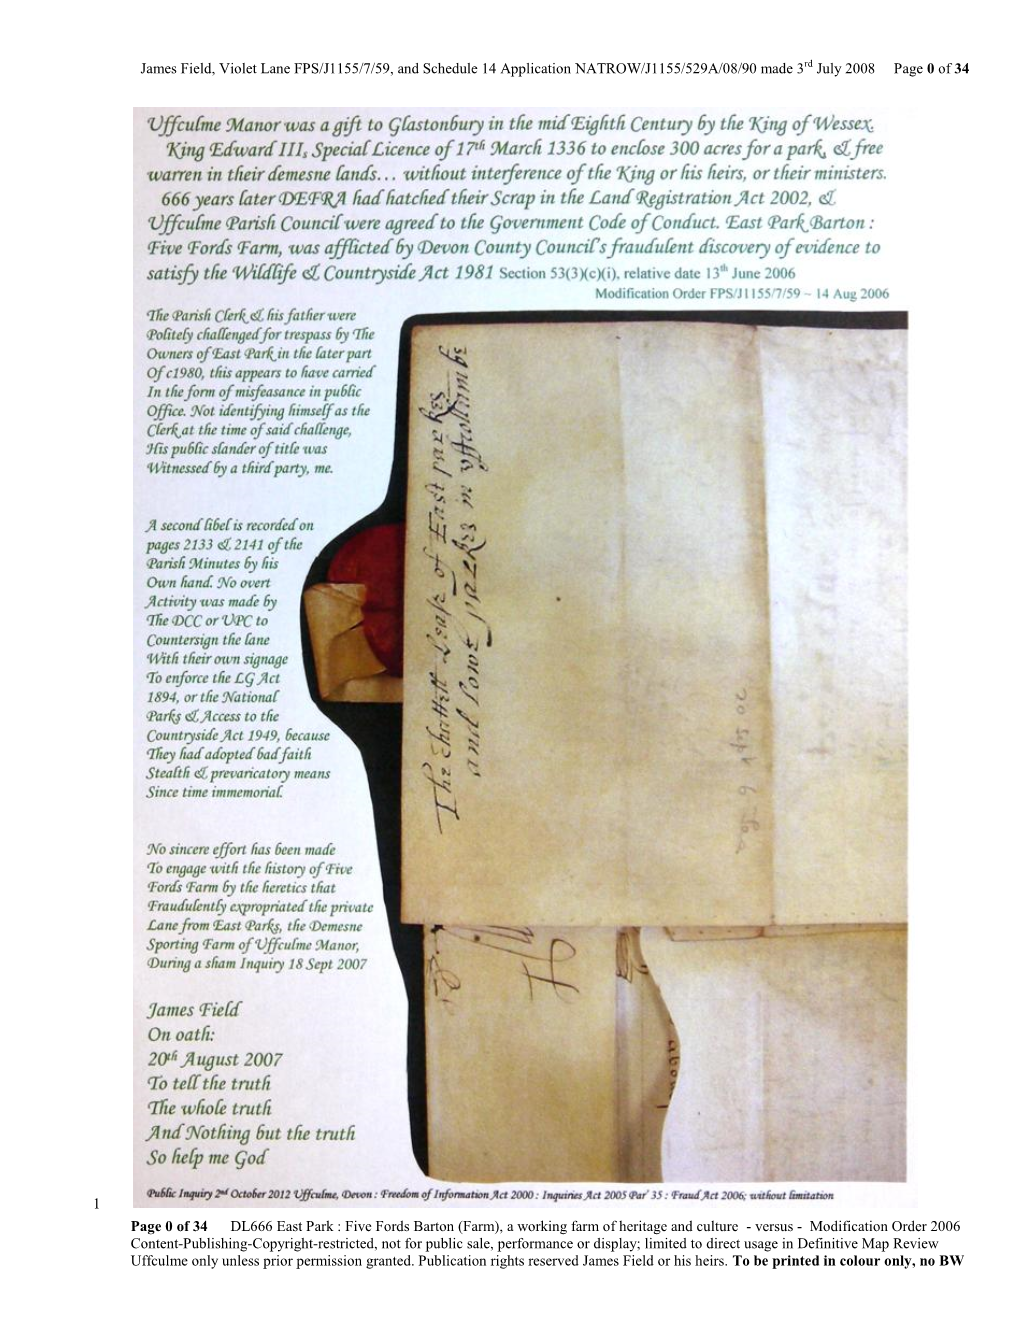 James Field, Violet Lane FPS/J1155/7/59, and Schedule 14 Application NATROW/J1155/529A/08/90 made 3rd July 2008 Page 0 of 34
Uffculme Manor was a gift to Glastonbury in the mid Eighth Century by the King of Wessex.
King Edward III, Special Licence of 17th March 1336 to enclose 300 acres for a park, & free
warren in their demesne lands… without interference of the King or his heirs, or their ministers.
666 years later DEFRA had hatched their Scrap in the Land Registration Act 2002, &
Uffculme Parish Council were agreed to the Government Code of Conduct. East Park Barton :
Five Fords Farm, was afflicted by Devon County Council's fraudulent discovery of evidence to
satisfy the Wildlife & Countryside Act 1981 Section 53(3)(c)(i), relative date 13th June 2006
Modification Order FPS/J1155/7/59 ~ 14 Aug 2006
The Parish Clerk & his father were
Politely challenged for trespass by The
Owners of East Park in the later part
Of c1980, this appears to have carried
In the form of misfeasance in public
Office. Not identifying himself as the
Clerk at the time of said challenge,
His public slander of title was
Witnessed by a third party, me.
A second libel is recorded on
pages 2133 & 2141 of the
Parish Minutes by his
Own hand. No overt
Activity was made by
The DCC or UPC to
Countersign the lane
With their own signage
To enforce the LG Act
1894, or the National
Parks & Access to the
Countryside Act 1949, because
They had adopted bad faith
Stealth & prevaricatory means
Since time immemorial.
No sincere effort has been made
To engage with the history of Five
Fords Farm by the heretics that
Fraudulently expropriated the private
Lane from East Parks, the Demesne
Sporting Farm of Uffculme Manor,
During a sham Inquiry 18 Sept 2007
James Field
On oath:
20th August 2007
To tell the truth
The whole truth
And Nothing but the truth
So help me God
The Chattell Lease of East parkes
and Lowe parkes in uffcolumbe
Public Inquiry 2nd October 2012 Uffculme, Devon : Freedom of Information Act 2000 : Inquiries Act 2005 Par' 35 : Fraud Act 2006; without limitation
1
Page 0 of 34 DL666 East Park : Five Fords Barton (Farm), a working farm of heritage and culture - versus - Modification Order 2006
Content-Publishing-Copyright-restricted, not for public sale, performance or display; limited to direct usage in Definitive Map Review
Uffculme only unless prior permission granted. Publication rights reserved James Field or his heirs. To be printed in colour only, no BW